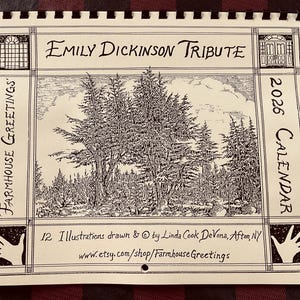 EMILY DICKINSON TRIBUTE
FARMHOUSE GREETINGS
2026 CALENDAR
12 Illustrations drawn & © by Linda Cook DeVona, Afton, NY
www.etsy.com/shop/FarmhouseGreetings